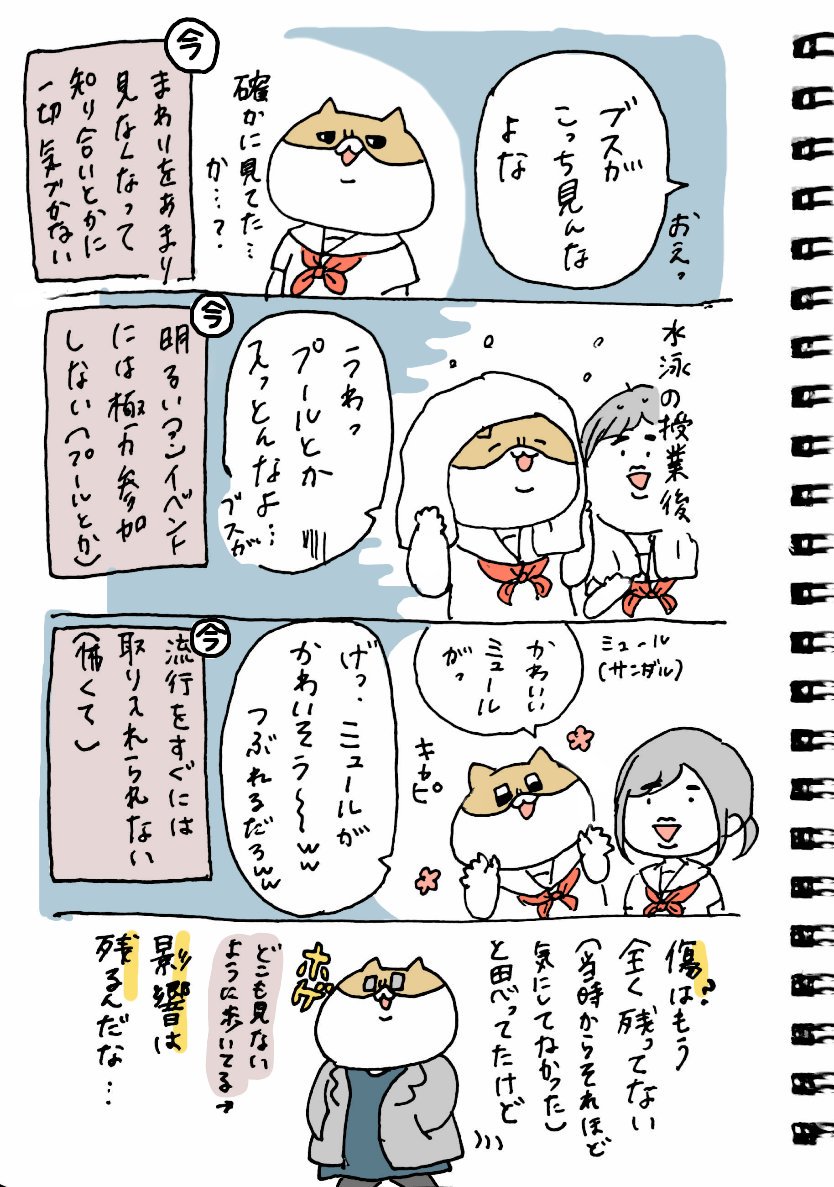 ブスが
こっち見んな
よな
おえっ
確かに見てた…
か…?
今
まわりをあまり
見なくなって
知り合いとかに
一切気づかない
水泳の授業後
うわっ
プールとか
入っとんなよ…
ブスが
今
明るいイベント
には極力参加
しない(プールとか)
ミュール
(サンダル)
かわいい
ミュール
がっ
キャピ
げっ、ミュールが
かわいそう~~ww
つぶれるだろww
今
流行をすぐには
取り入れられない
(怖くて)
傷はもう
全く残ってない
(当時からそれほど
気にしてなかった)
と思ってたけど
ホゲ
どこも見ない
ように歩いてる→
影響は
残るんだな…